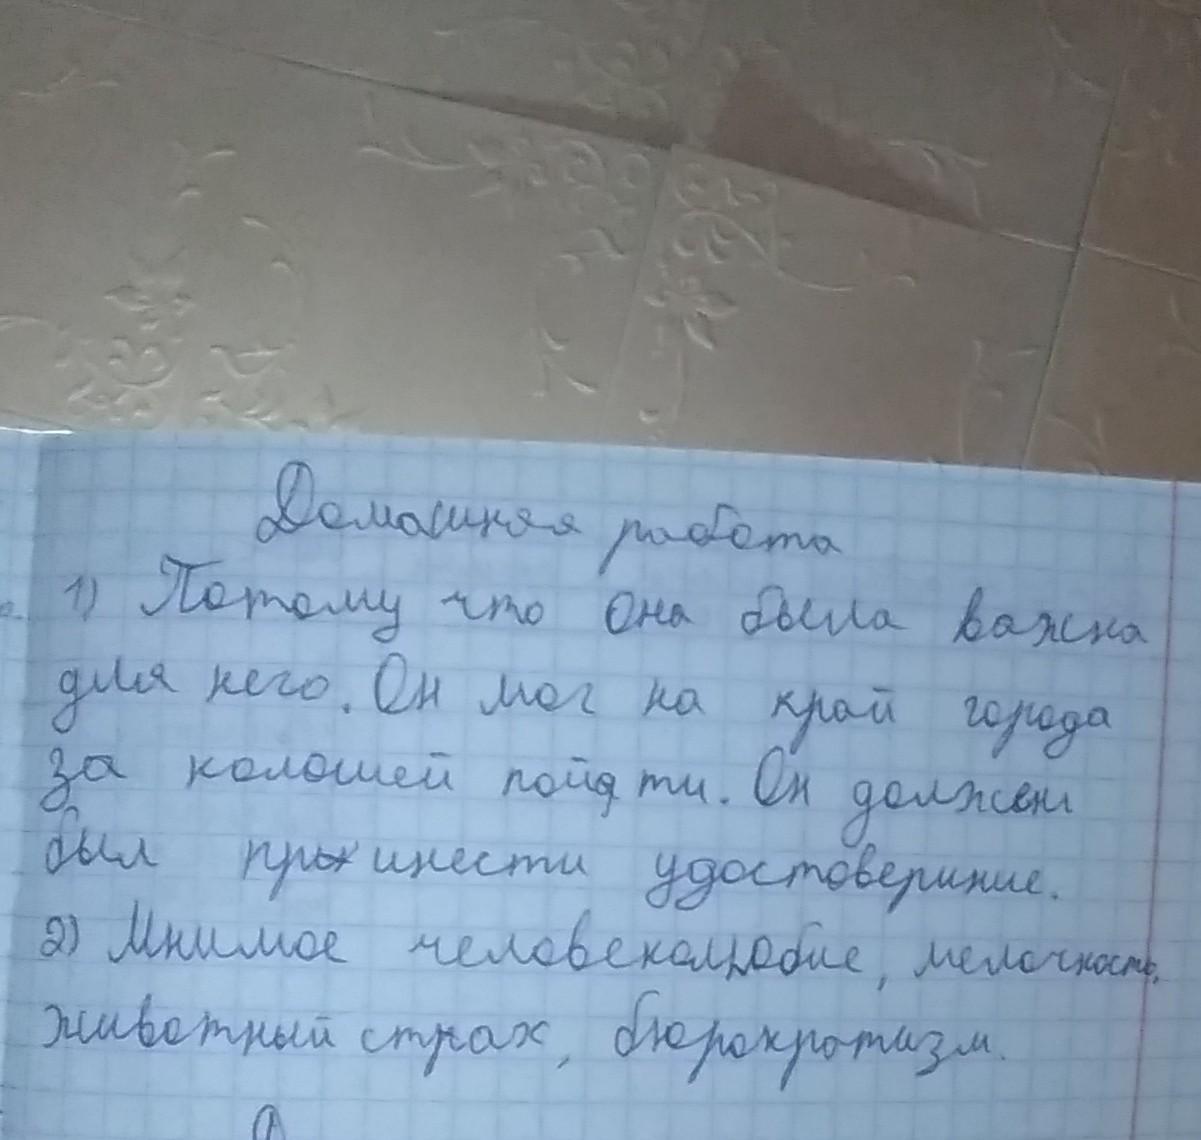 Домашняя работа
1) Потому что она была важна
для него. Он мог на край города
за калошей пойд ти. Он должен
был принести удостовериние.
2) Мнимое человеколюбие, мелочность,
животный страх, бюрократизм.